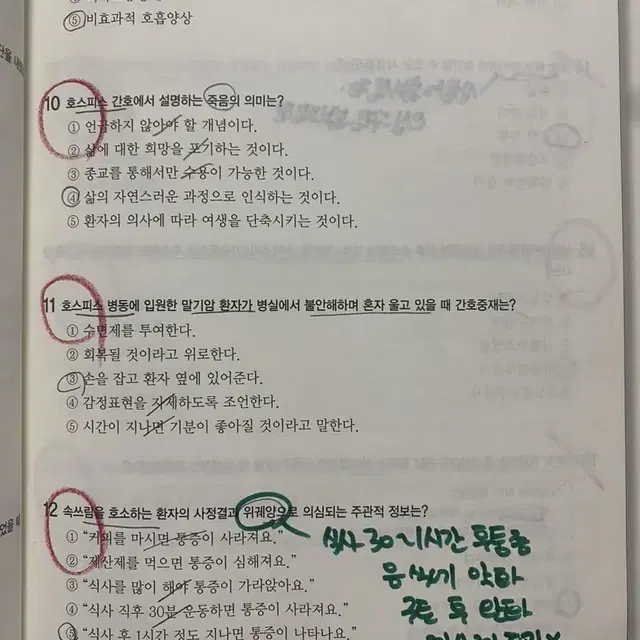 ⑤ 비효과적 호흡양상
10 호스피스 간호에서 설명하는 죽음의 의미는?
① 언급하지 않아야 할 개념이다.
② 삶에 대한 희망을 포기하는 것이다.
③ 종교를 통해서만 수용이 가능한 것이다.
④ 삶의 자연스러운 과정으로 인식하는 것이다.
⑤ 환자의 의사에 따라 여생을 단축시키는 것이다.
11 호스피스 병동에 입원한 말기암 환자가 병실에서 불안해하며 혼자 울고 있을 때 간호중재는?
① 수면제를 투여한다.
② 회복될 것이라고 위로한다.
③ 손을 잡고 환자 옆에 있어준다.
④ 감정표현을 자제하도록 조언한다.
⑤ 시간이 지나면 기분이 좋아질 것이라고 말한다.
12 속쓰림을 호소하는 환자의 사정결과 위궤양으로 의심되는 주관적 정보는?
① “커피를 마시면 통증이 사라져요.”
② “제산제를 먹으면 통증이 심해져요.”
③ “식사를 많이 해야 통증이 가라앉아요.”
④ “식사 직후 30분 운동하면 통증이 사라져요.”
⑤ “식사 후 1시간 정도 지나면 통증이 나타나요.”
식사 30~1시간 후 통증
음식먹기
구토 후 완화